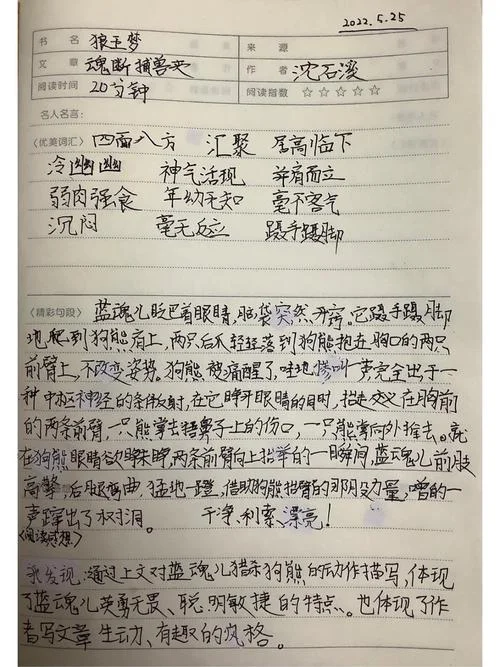 2022.5.25
书 名 狼王梦 来 源
文 章 魂断捕兽夹 作 者 沈石溪
阅读时间 20分钟 阅读指数 ☆☆☆☆☆
名人名言:
〈优美词汇〉 四面八方 汇聚 居高临下
冷幽幽 神气活现 并肩而立
弱肉强食 年幼无知 毫不客气
沉闷 毫无反应 蹑手蹑脚
〈精彩句段〉 蓝魂儿眨巴着眼睛,脑袋突然开窍。它蹑手蹑脚
地爬到狗熊肩上,两只后爪轻轻落到狗熊抱在胸口的两只
前臂上,不改变姿势。狗熊被痛醒了,哇地惨叫一声完全出于一
种中枢神经的条件反射,在它睁开眼睛的同时,抬起交叉在胸前
的两条前臂,一只熊掌去捂鼻子上的伤口,一只熊掌向外推去。就
在狗熊眼睛欲睁未睁,两条前臂向上抬举的一瞬间,蓝魂儿前肢
高擎,后腿弯曲,猛地一蹬,借助狗熊抬臂的那股力量,噌的一
声蹿出了树洞。 干净、利索、漂亮!
〈阅读感想〉
我发现:通过上文对蓝魂儿猎杀狗熊的动作描写,体现
了蓝魂儿英勇无畏、聪明敏捷的特点。也体现了作
者写文章生动、有趣的风格。